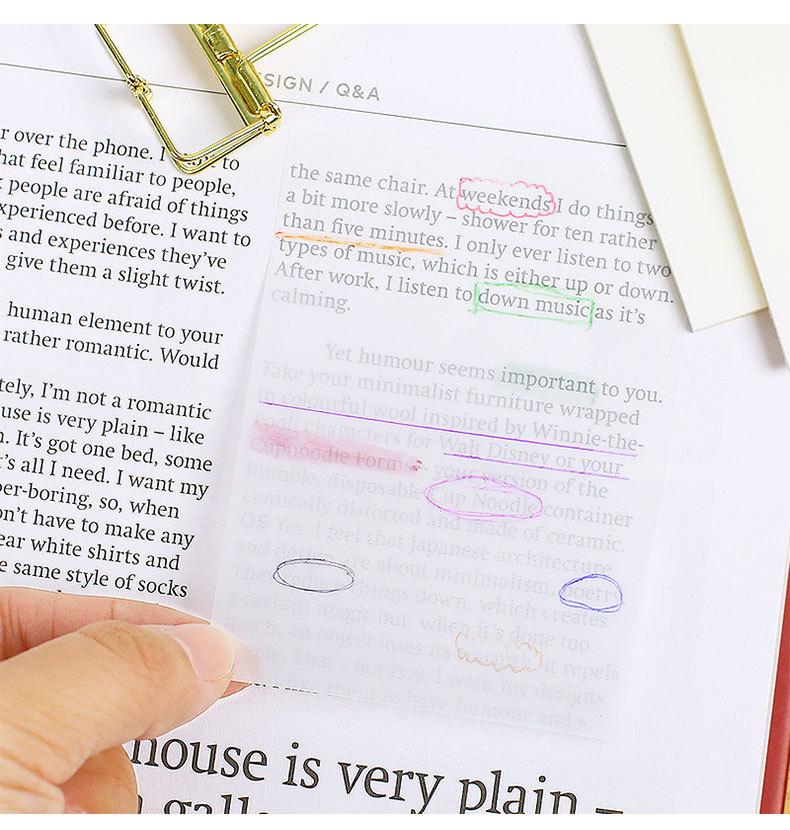 SIGN / Q&A
r over the phone. I to
hat feel familiar to people,
people are afraid of things
xperienced before. I want to
s and experiences they've
give them a slight twist.
human element to your
rather romantic. Would
tely, I'm not a romantic
use is very plain – like
n. It's got one bed, some
t's all I need. I want my
per-boring, so, when
on't have to make any
ear white shirts and
e same style of socks
the same chair. At weekends I do things
a bit more slowly – shower for ten rather
than five minutes. I only ever listen to two
types of music, which is either up or down.
After work, I listen to down music as it's
calming.
Yet humour seems important to you.
Take your minimalist furniture wrapped
in colourful wool inspired by Winnie-the-
Pooh characters for Walt Disney or your
Cupnoodle Forms – your version of the
humble, disposable Cup Noodle container
comically distorted and made of ceramic.
OS Yes. I feel that Japanese architecture
and design are about minimalism, poetry
They reduce things down, which creates
a certain magic but, when it's done too
much, an object loses its warmth. It repels
people. That's not how I want my designs
like them to have humour and »
house is very plain –